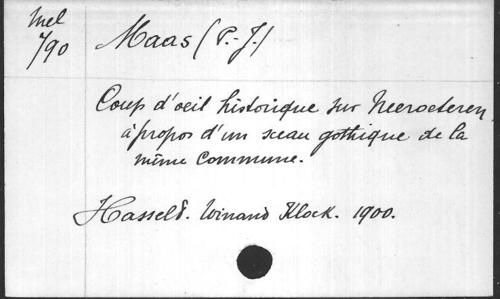 Mel
790
Maas (P.-J.)
Coup d'oeil historique sur Neeroeteren,
à propos d'un sceau gothique de la
même commune.
Hasselt. Winand Klock. 1900.